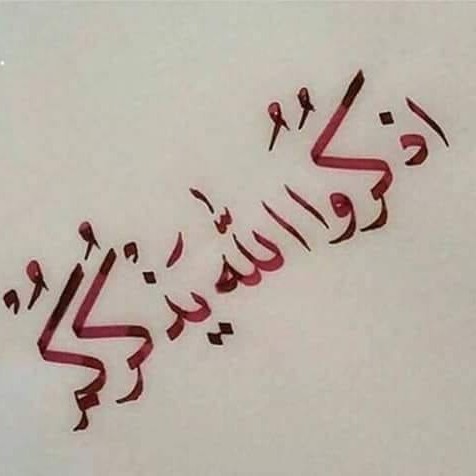 اذكُرُوا اللّٰه يَذْكُرْكُمْ